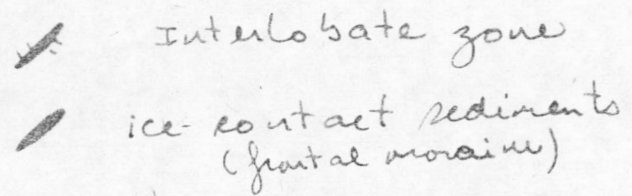 Interlobate zone
ice-contact sediments
(frontal moraine)